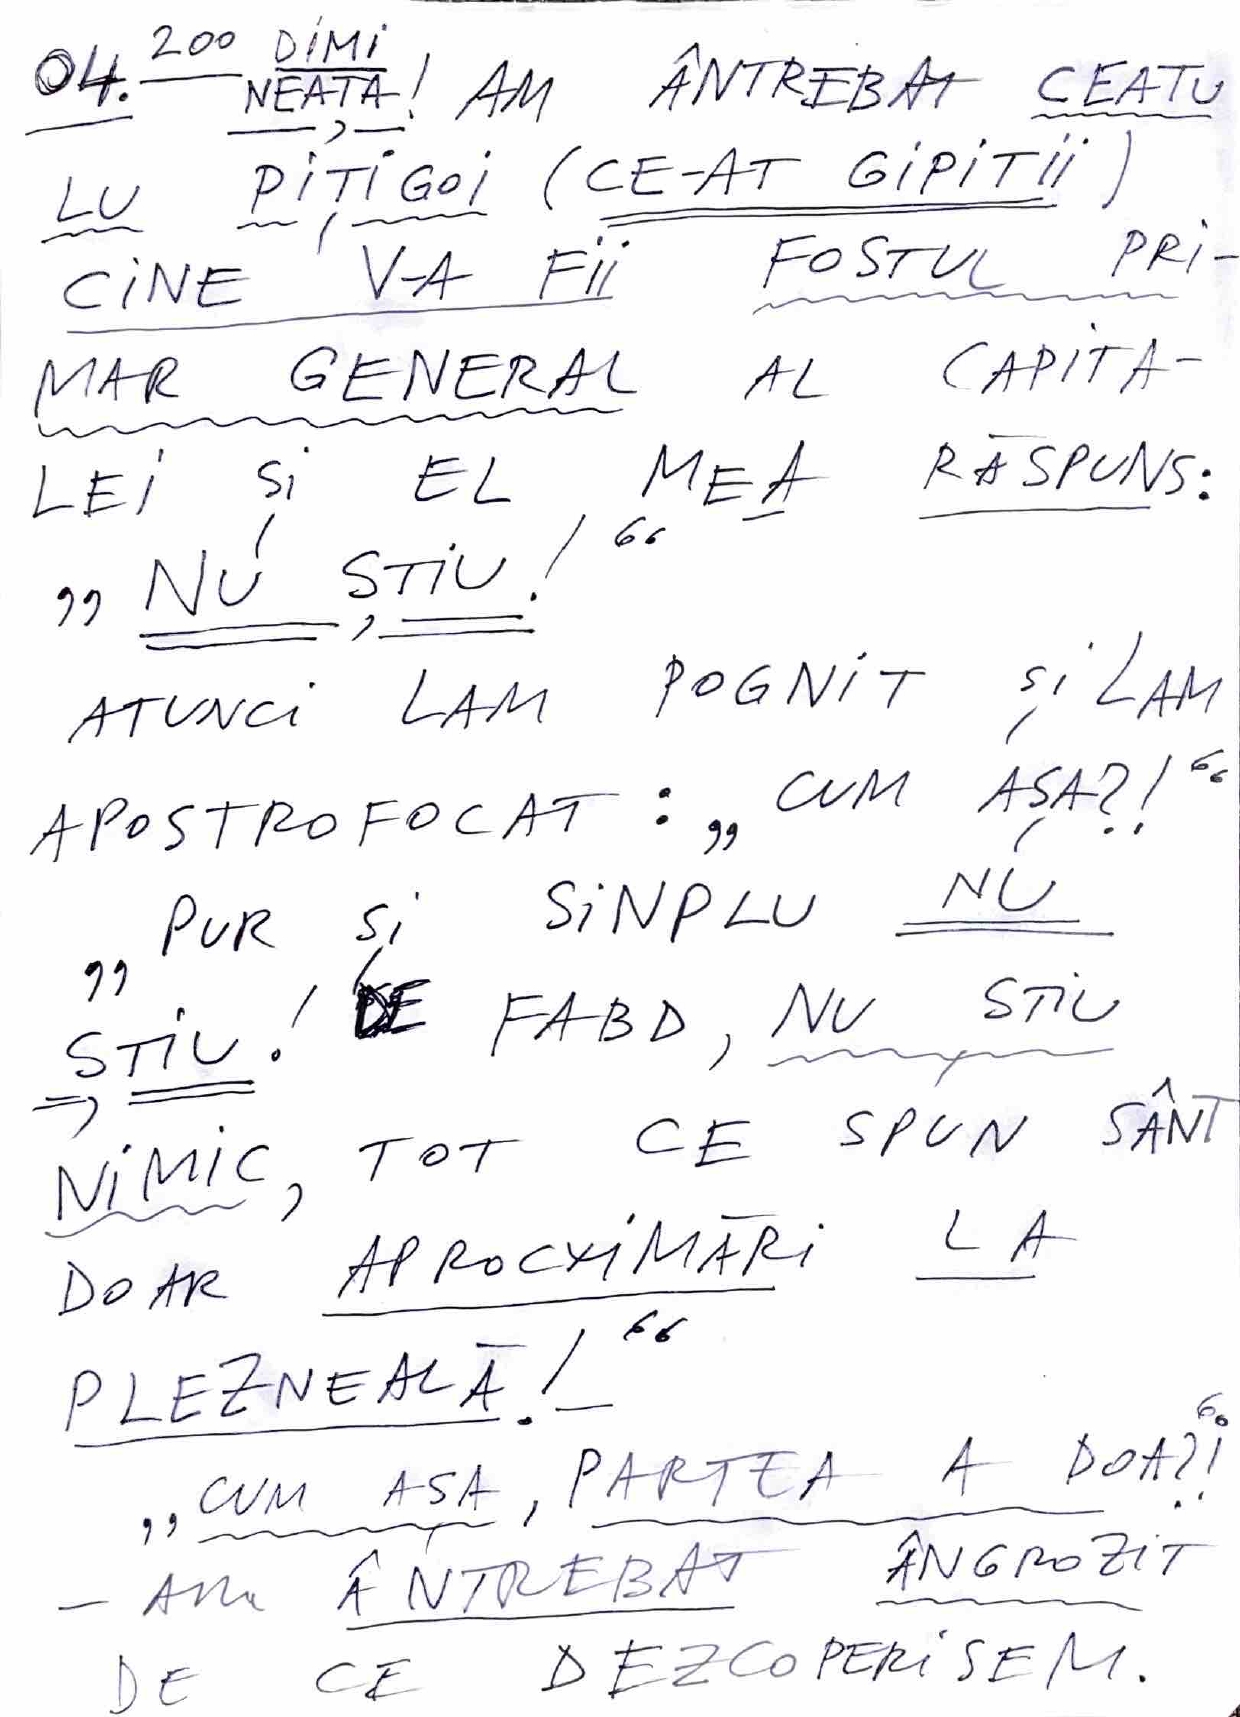 04.200 DIMI
NEAȚA! AM ÂNTREBAT CEATU
LU PIȚIGOI (CE-AT GIPITII)
CINE V-A FII FOSTUL PRI-
MAR GENERAL AL CAPITA-
LEI ȘI EL MEA RĂSPUNS:
„NU ȘTIU!“
ATUNCI LAM POGNIT ȘI LAM
APOSTROFOCAT: „CUM AȘA?!“
„PUR ȘI SINPLU NU
ȘTIU! DE FABD, NU ȘTIU
NIMIC, TOT CE SPUN SÂNT
DOAR APROCXIMĂRI LA
PLEZNEALĂ!“ –
„CUM AȘA, PARTEA A DOA?!“
– AM ÂNTREBAT ÂNGROZIT
DE CE DEZCOPERISEM.